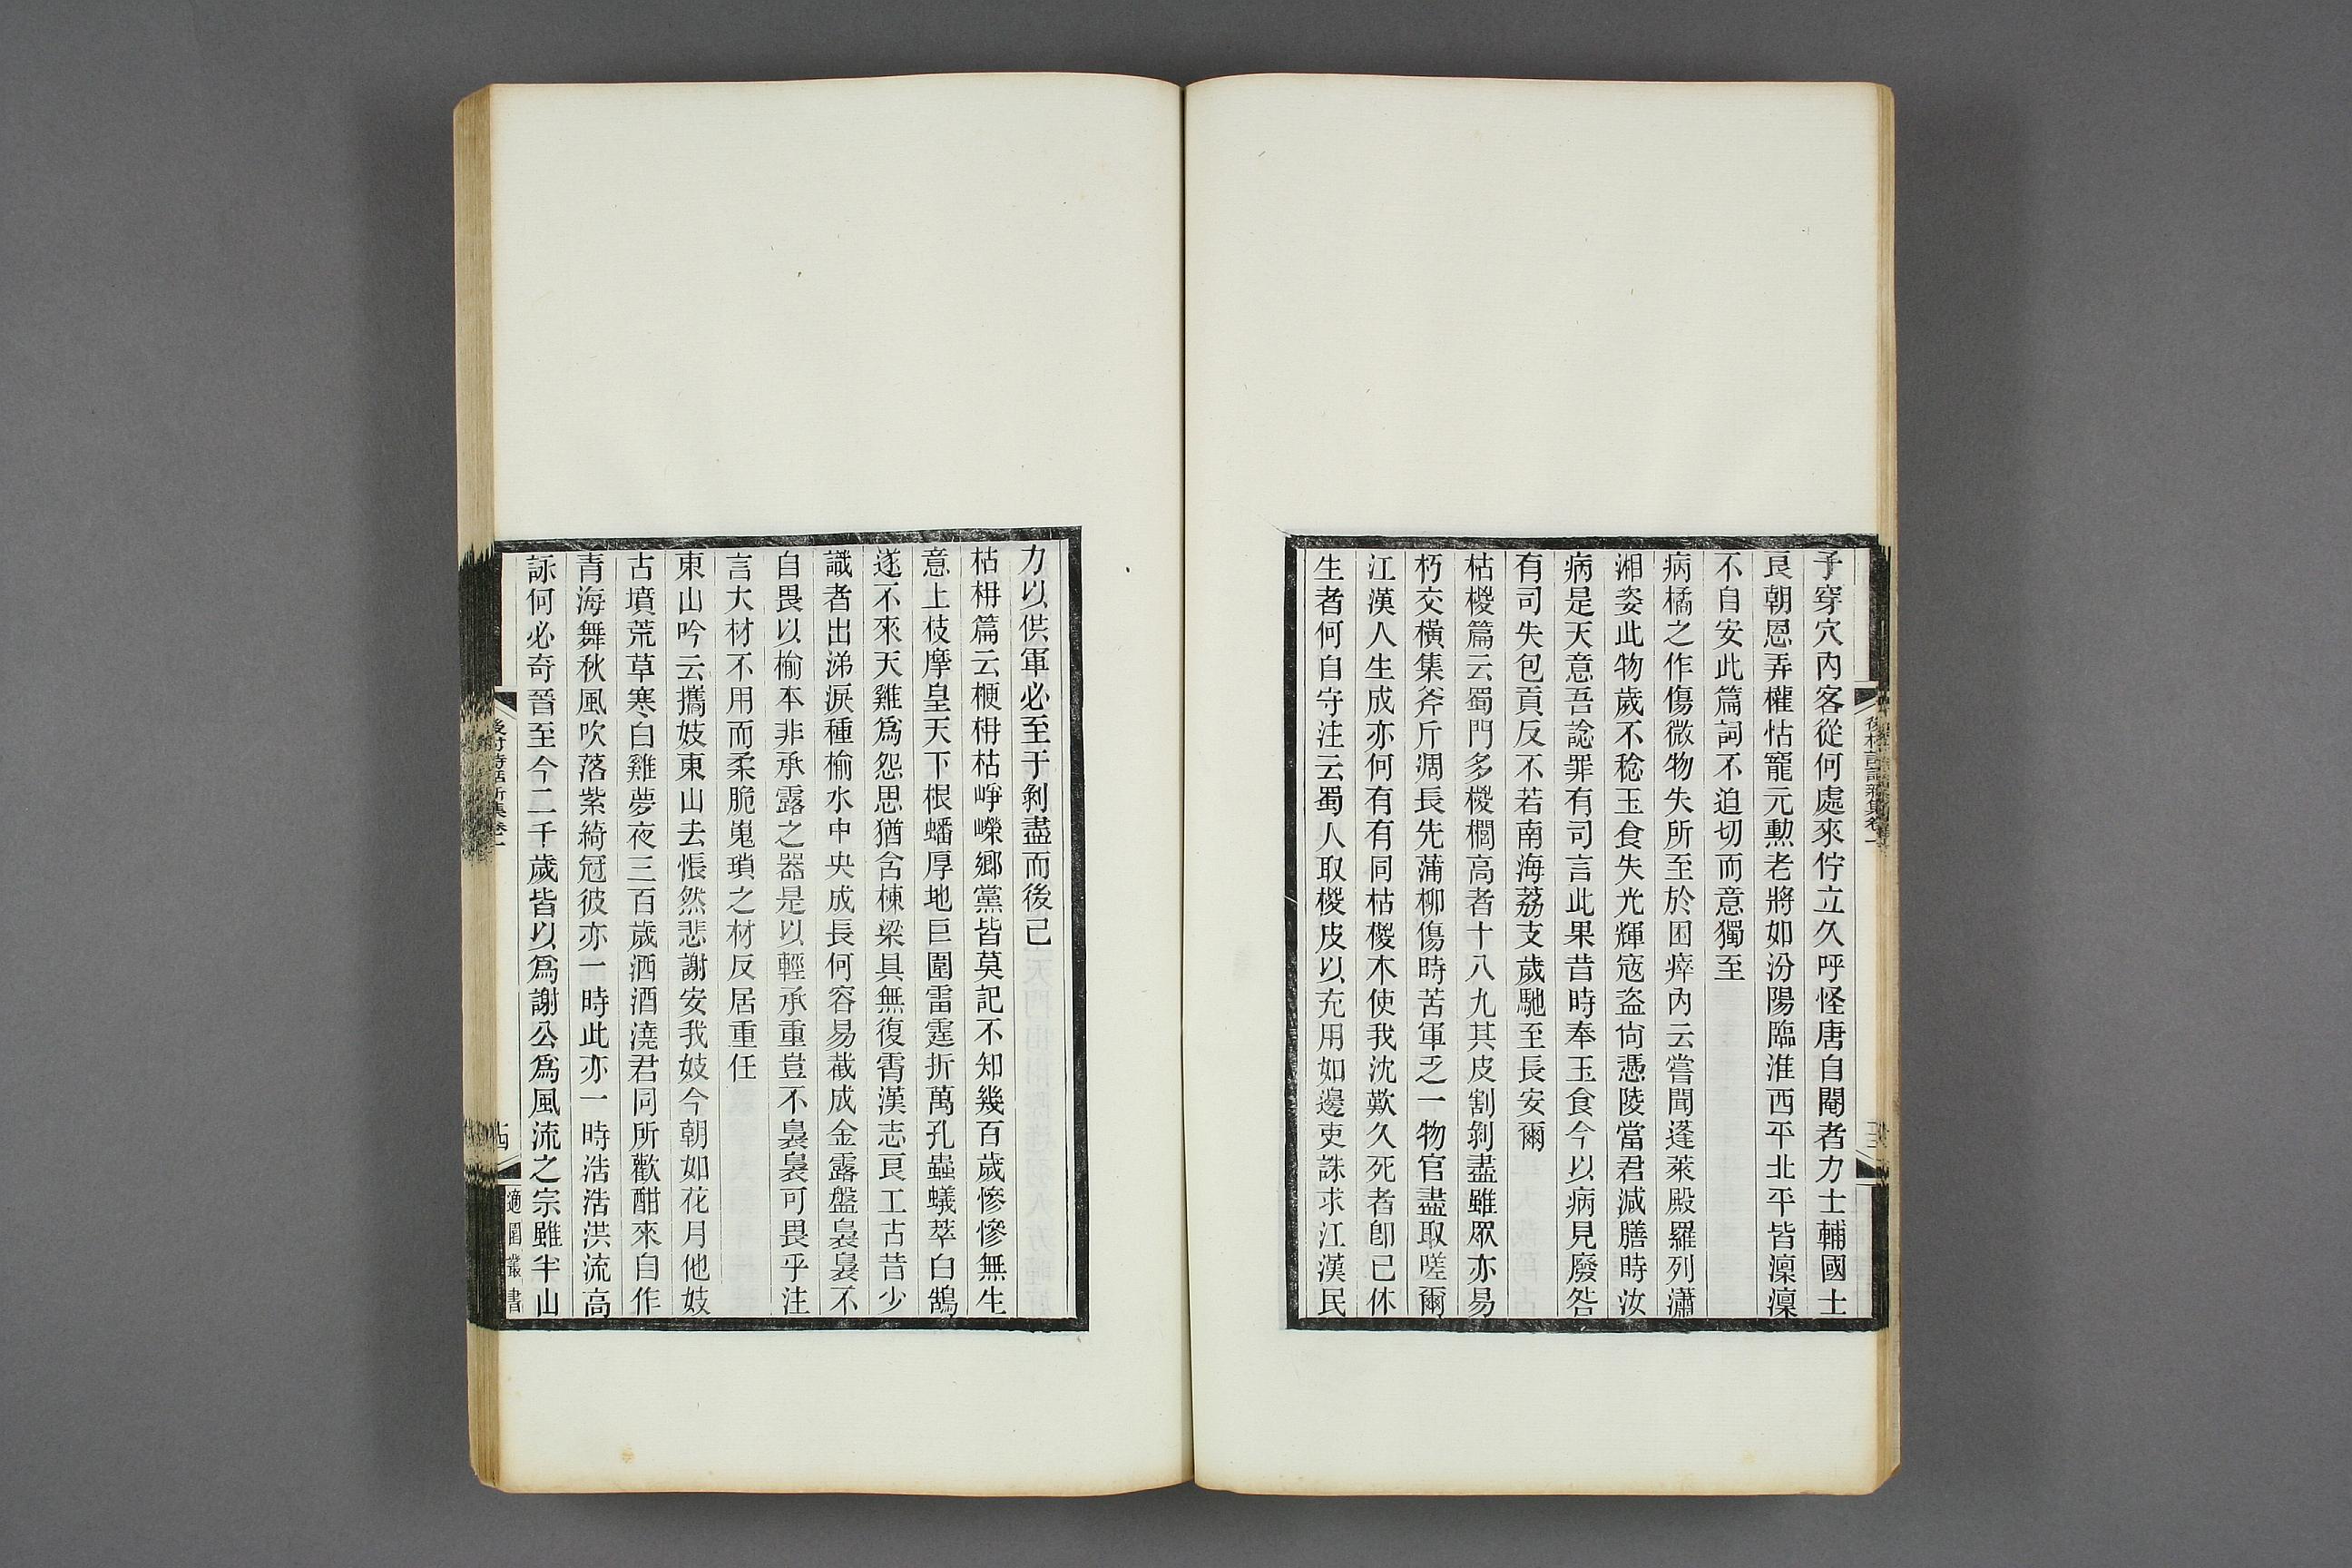 子穿穴內客從何處來佇立久呼怪唐自閹者力士輔國士
良朝恩弄權怙寵元勲老將如汾陽臨淮西平北平皆凜凜
不自安此篇詞不迫切而意獨至
病橘之作傷微物失所至於困瘁內云嘗聞蓬萊殿羅列瀟
湘姿此物歲不稔玉食失光輝寇盗尙憑陵當君減膳時汝
病是天意吾諗罪有司言此果昔時奉玉食今以病見廢咎
有司失包貢反不若南海荔支歲馳至長安爾
枯椶篇云蜀門多椶櫚高者十八九其皮割剝盡雖眾亦易
朽交橫集斧斤凋長先蒲柳傷時苦軍乏一物官盡取嗟爾
江漢人生成亦何有有同枯椶木使我沈歎久死者卽已休
生者何自守注云蜀人取椶皮以充用如邊吏誅求江漢民
力以供軍必至于剝盡而後已
枯枏篇云楩枏枯崢嶸鄉黨皆莫記不知幾百歲慘慘無生
意上枝摩皇天下根蟠厚地巨圍雷霆折萬孔蟲蟻萃白鵠
遂不來天雞爲怨思猶含棟梁具無復霄漢志良工古昔少
識者出涕淚種榆水中央成長何容易截成金露盤裊裊不
自畏以榆本非承露之器是以輕承重豈不裊裊可畏乎注
言大材不用而柔脆嵬瑣之材反居重任
東山吟云攜妓東山去悵然悲謝安我妓今朝如花月他妓
古墳荒草寒白雞夢夜三百歲洒酒澆君同所歡酣來自作
青海舞秋風吹落紫綺冠彼亦一時此亦一時浩浩洪流高
詠何必奇晉至今二千歲皆以爲謝公爲風流之宗雖半山
後村詩話新集卷一
十四
適園叢書